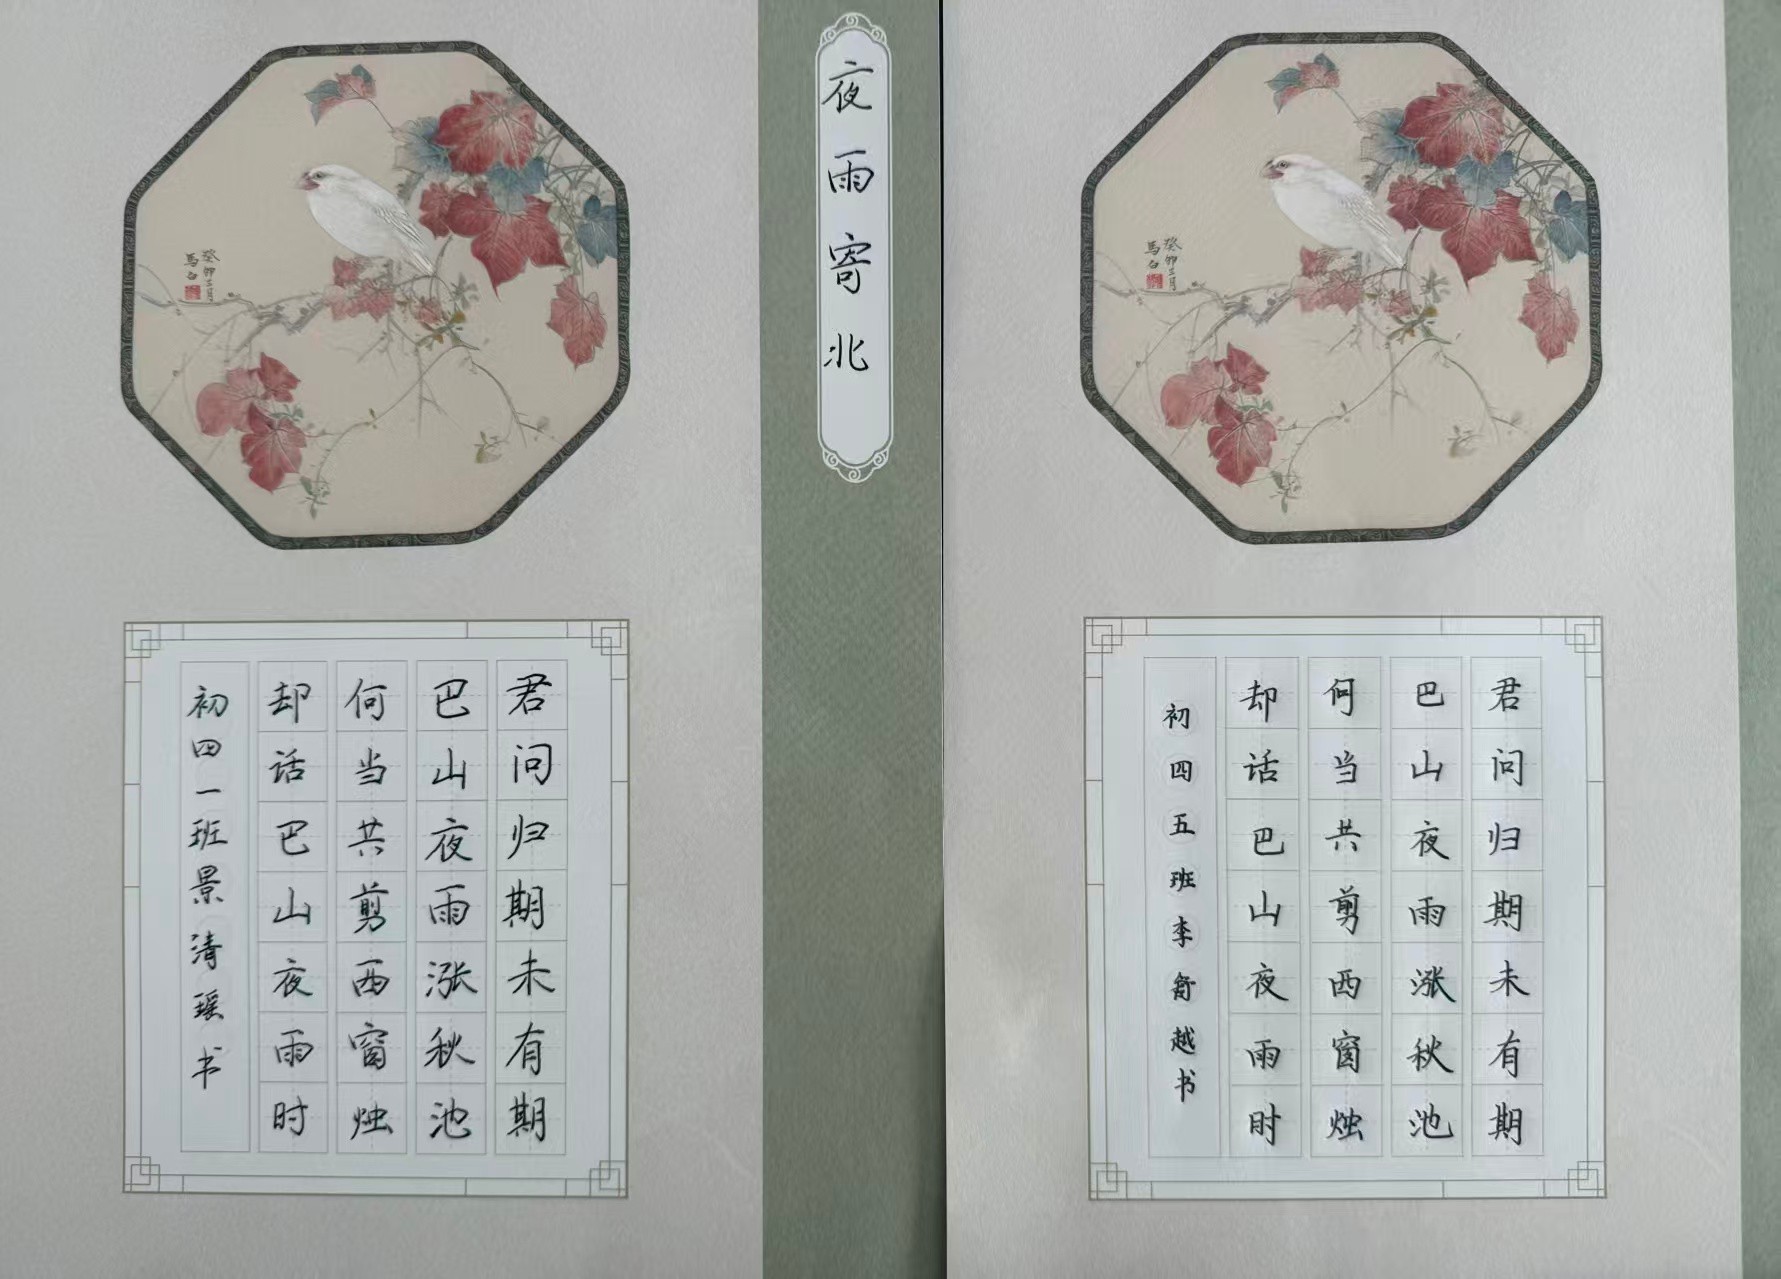 夜雨寄北
癸卯三月
馬白
君问归期未有期
巴山夜雨涨秋池
何当共剪西窗烛
却话巴山夜雨时
初四一班景清瑶书
癸卯三月
馬白
君问归期未有期
巴山夜雨涨秋池
何当共剪西窗烛
却话巴山夜雨时
初四五班李舒越书